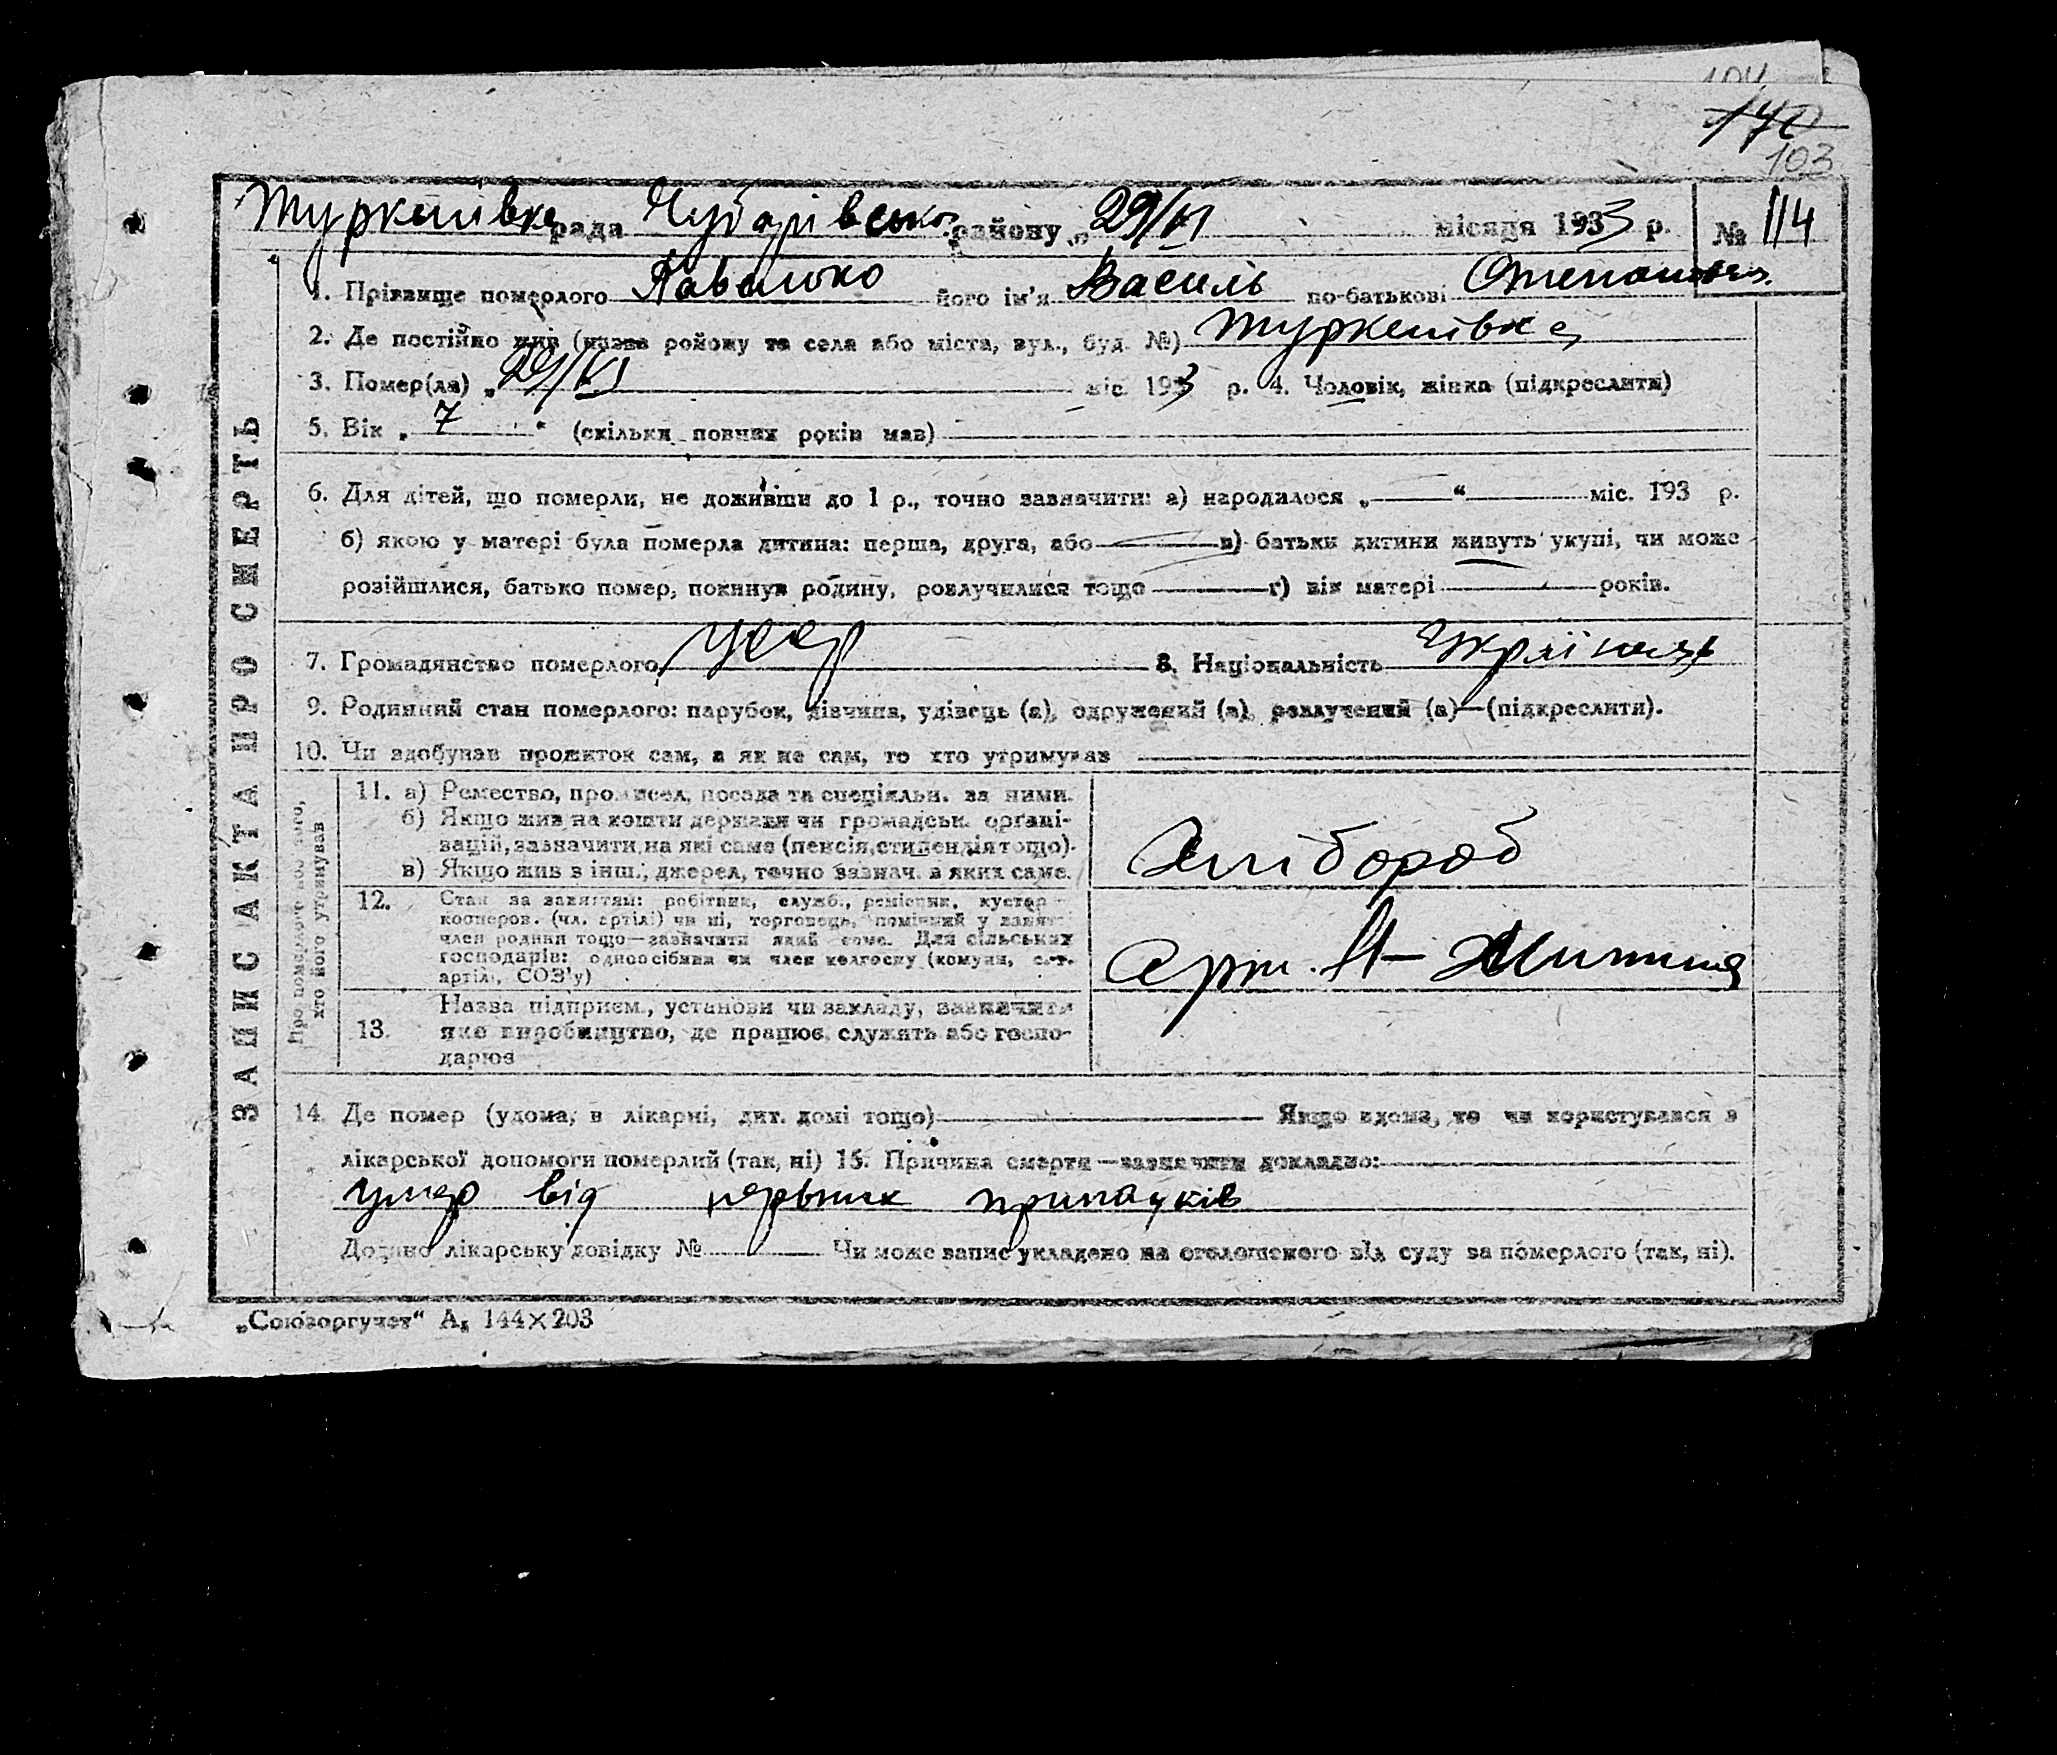 170
103
Туркенівка рада Чубарівсько району „ 29/VI місяця 1933 р. № 114
1. Прізвище померлого його ім'я Василь по-батькові
2. Де постійно жив (назва району та села або міста, вул., буд. №) Туркенівка
3. Помер(ла) „ 29/VI міс. 1933 р. 4. Чоловік, жінка (підкреслити)
5. Вік „ 7 “ (скільки повних років мав)
6. Для дітей, що померли, не доживши до 1 р., точно зазначити: а) народилося „ “ міс. 193 р.
б) якою у матері була померла дитина: перша, друга, або в) батьки дитини живуть укупі, чи може
розійшлися, батько помер, покинув родину, розлучилися тощо г) вік матері років.
7. Громадянство померлого усср 8. Національність Україньць
9. Родинний стан померлого: парубок, дівчина, удівець (а), одружений (а), розлучений (а)—(підкреслити).
10. Чи здобував прожиток сам, а як не сам, то хто утримував
ЗАПИС АКТА ПРО СМЕРТЬ
Про померлого або того,
хто його утримував
11. а) Ремество, промисел, посада та спеціяльн. за ними.
б) Якщо жив на кошти держави чи громадськ. організацій, зазначити, на які саме (пенсія, стипендія тощо).
в) Якщо жив з інш. джерел, точно зазнач. з яких саме.
Хлібороб
12. Стан за заняттям: робітник, служб., ремісник, кустар
кооперов. (чл. артілі) чи ні, торговець, помічний у занятті
член родини тощо—зазначити який саме. Для сільських
господарів: одноосібник чи член колгоспу (комуни, с.-г.
артілі, СОЗ'у)
Арт.
13. Назва підприєм., установи чи закладу, зазначити
яке виробництво, де працює, служить або господарює
14. Де помер (удома, в лікарні, дит. домі тощо) Якщо вдома, то чи користувався з
лікарської допомоги померлий (так, ні) 15. Причина смерти—зазначити докладно:
умер від нервних припадків
Додано лікарську довідку № Чи може запис укладено на оголошеного від суду за померлого (так, ні).
„Союзоргучет“ А₅ 144×203